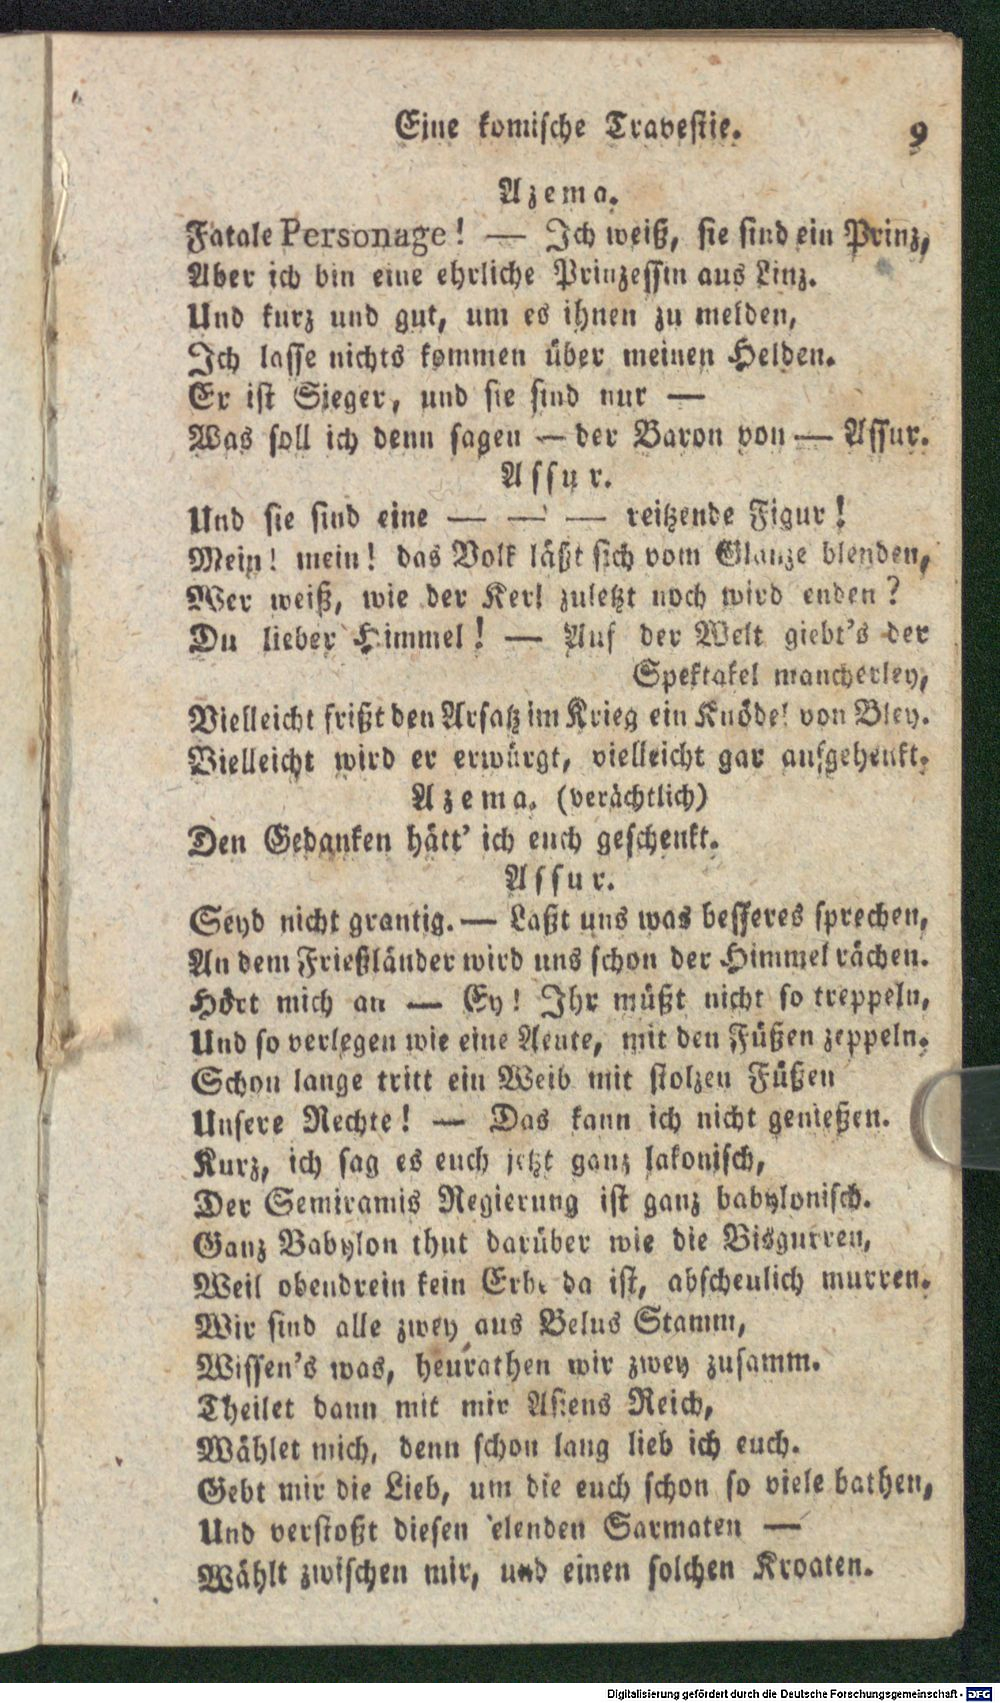 Eine komische Travestie. 9
Azema.
Fatale Personage! — Ich weiß, sie sind ein Prinz,
Aber ich bin eine ehrliche Prinzessin aus Linz.
Und kurz und gut, um es ihnen zu melden,
Ich lasse nichts kommen über meinen Helden.
Er ist Sieger, und sie sind nur —
Was soll ich denn sagen — der Baron von — Assur.
Assur.
Und sie sind eine — — — reitzende Figur!
Mein! mein! das Volk läßt sich vom Glanze blenden,
Wer weiß, wie der Kerl zuletzt noch wird enden?
Du lieber Himmel! — Auf der Welt giebt's der
Spektakel mancherley,
Vielleicht frißt den Arsatz im Krieg ein Knödel von Bley.
Vielleicht wird er erwürgt, vielleicht gar aufgehenkt.
Azema. (verächtlich)
Den Gedanken hätt' ich euch geschenkt.
Assur.
Seyd nicht grantig. — Laßt uns was besseres sprechen,
An dem Frießländer wird uns schon der Himmel rächen.
Hört mich an — Ey! Ihr müßt nicht so treppeln,
Und so verlegen wie eine Aente, mit den Füßen zeppeln.
Schon lange tritt ein Weib mit stolzen Füßen
Unsere Rechte! — Das kann ich nicht genießen.
Kurz, ich sag es euch jetzt ganz lakonisch,
Der Semiramis Regierung ist ganz babylonisch.
Ganz Babylon thut darüber wie die Bisgurren,
Weil obendrein kein Erbe da ist, abscheulich murren.
Wir sind alle zwey aus Belus Stamm,
Wissen's was, heurathen wir zwey zusamm.
Theilet dann mit mir Asiens Reich,
Wählet mich, denn schon lang lieb ich euch.
Gebt mir die Lieb, um die euch schon so viele bathen,
Und verstoßt diesen elenden Sarmaten —
Wählt zwischen mir, und einen solchen Kroaten.
Digitalisierung gefördert durch die Deutsche Forschungsgemeinschaft - DFG